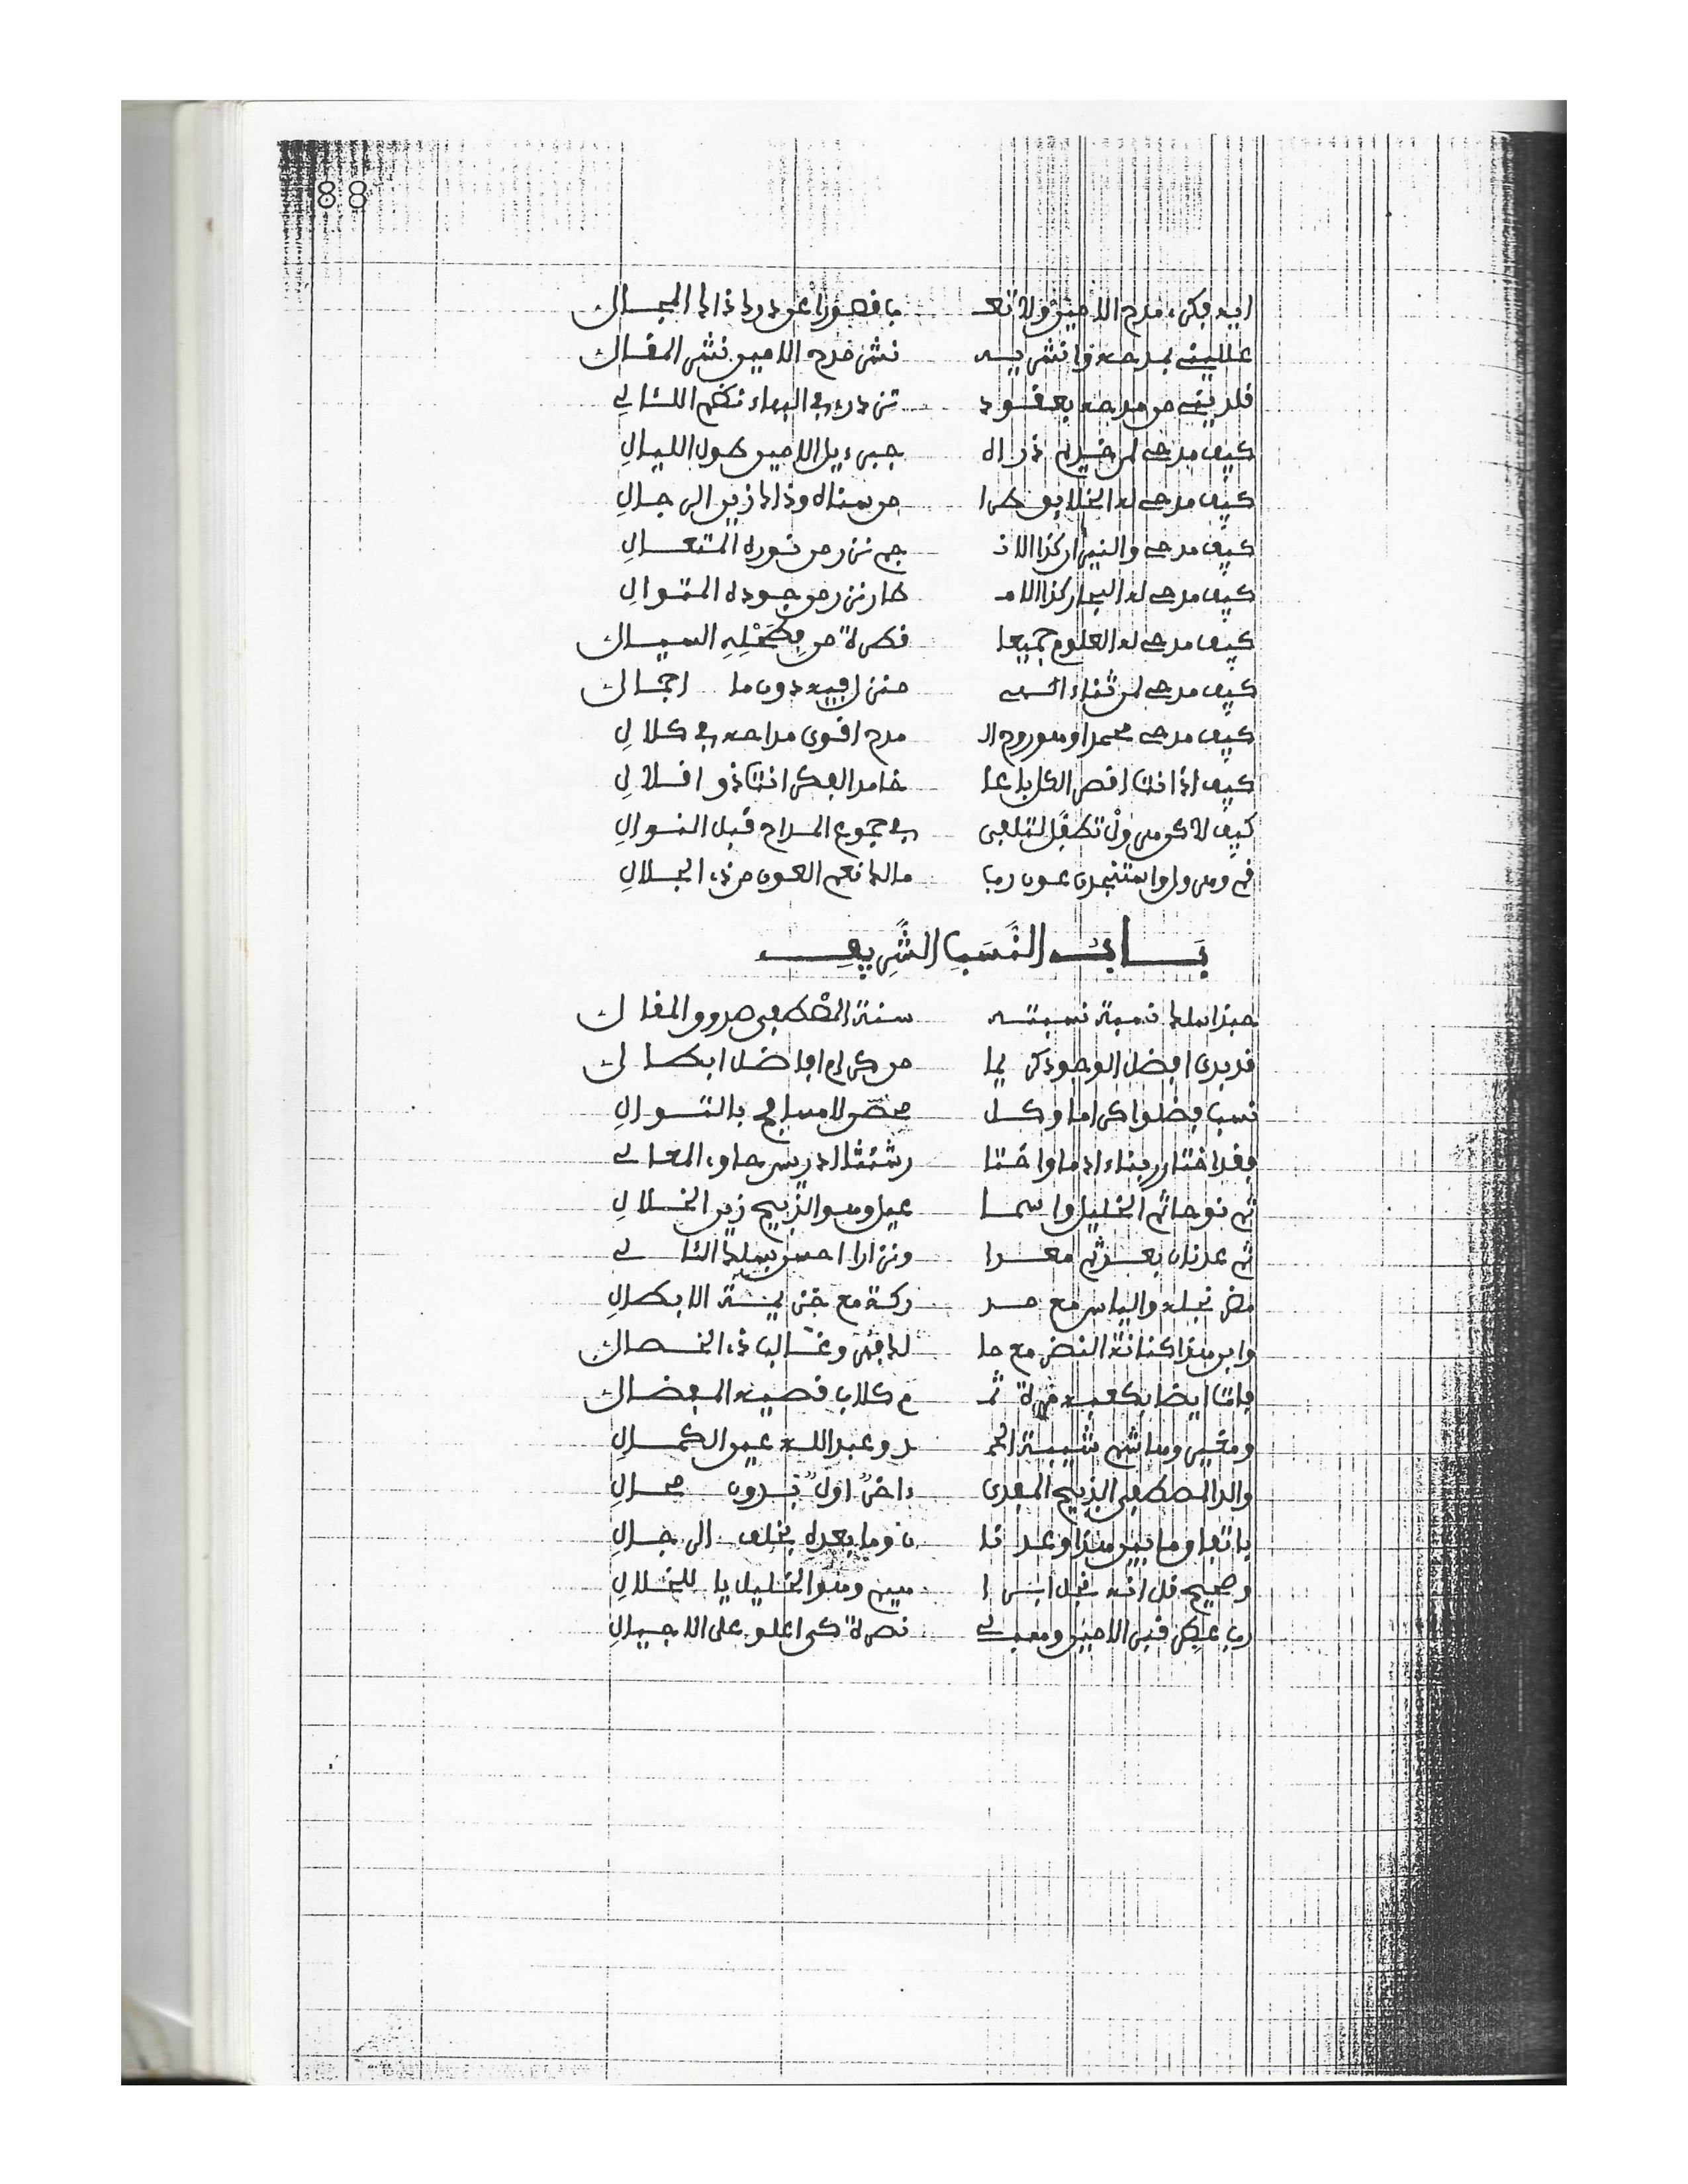 88
ايه فكري مدح الامين ولا تعـ باقصورا عن درك ذاك المجال
عللينى بمدحه وانشريه نشر مدح الامين نشر المقال
قلدينى من مدحه بعقود تزدرى في البهاء نظم اللئالى
كيف مدحى لمن خديم ذراه جبرءيل الامين طول الليال
كيف مدحى له الخلايق طرا من سناه وذاك زين الرجال
كيف مدحى والنيران كذا الانـ جم نزر من نوره المتعال
كيف مدحى له البحار كذا الامـ طار نزر من جوده المتوال
كيف مدحى له العلوم جميعا قطرة من فضله السيال
كيف مدحى لمن ثناء الهى منزل فيه دون ما اجمال
كيف مدحى محمدا وهو روح الـ مدح اقوى مداحه في كلال
كيف اذ انت اقصر الكل باعا خامد الفكر انت ذو اقلال
كيف لا كن هرول تطفل لتلفى في جموع المداح قبل النوال
قم وهرول واستنجدن عون رب مالك نعم العون من ذى الجلال
بَـــابُ النَّسَبِ الشَّرِيفِ
حبذا سلك نسبة نسبته سنة المصطفى صدوق المقال
قد بدى افضل الوجود كريما من كرام افاضل ابطال
نسب فضلوا كراما وكل محصن لا مسافح بالتوال
فقد اختار ربناء ادما واختا رشئثا ادريس حاوى المعالى
ثم نوحا ثم الخليل واسما عيل وهو الذبيح زين الخلال
ثم عدنان بعد ثم معدا ونزارا احسن بسلك التالى
مضر نجله والياس مع مد ركة مع خزيمة الابطال
وابن هذا كنانة النضر مع ما لك فهر وغالب ذى الخصال
فاتا ايضا بكعبه مرة ثـ م كلاب قصيه المفضال
ومغير وهاشم شيبة الحمـ د وعبد الله عين الكمال
والد المصطفى الذبيح المفدى ءاخر اول بدون محال
باتفاق ما بين هذا وعدنا ن وما بعده بخلف الرجال
وصحيح قل انه نجل ابرا هيم وهو الخليل يا للخلال
رب عطر قبر الامين وهب لى نصرة كى اعلو على الاجيال